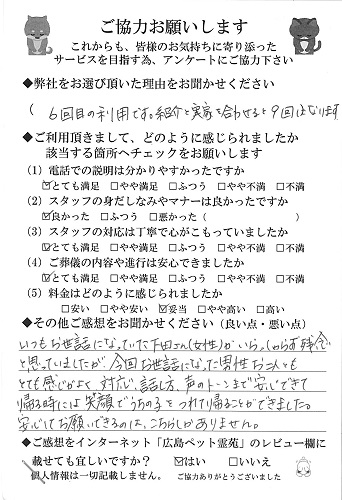 ご協力お願いします
これからも、皆様のお気持ちに寄り添った
サービスを目指す為、アンケートにご協力下さい
◆弊社をお選び頂いた理由をお聞かせください
( 6回目の利用です。紹介と実家を合わせると9回はなります
◆ご利用頂きまして、どのように感じられましたか
該当する箇所へチェックをお願いします
(1) 電話での説明は分かりやすかったですか
☑とても満足 □やや満足 □ふつう □やや不満 □不満
(2) スタッフの身だしなみやマナーは良かったですか
☑良かった □ふつう □悪かった ( )
(3) スタッフの対応は丁寧で心がこもっていましたか
☑とても満足 □やや満足 □ふつう □やや不満 □不満
(4) ご葬儀の内容や進行は安心できましたか
☑とても満足 □やや満足 □ふつう □やや不満 □不満
(5) 料金はどのように感じられましたか
□安い □やや安い ☑妥当 □やや高い □高い
◆その他ご感想をお聞かせください (良い点・悪い点)
いつもお世話になっていた下田さん(女性)がいらっしゃらず残念
と思っていましたが、今回お世話になった男性お二人も
とても感じがよく対応、話し方、声のトーンまで安心できて
帰る時には笑顔でうちの子をつれて帰ることができました。
安心してお願いできるのは、こちらしかありません。
◆ご感想をインターネット「広島ペット霊苑」のレビュー欄に
載せても宜しいですか? ☑はい □いいえ
個人情報は一切記載しません。 ご協力ありがとうございました